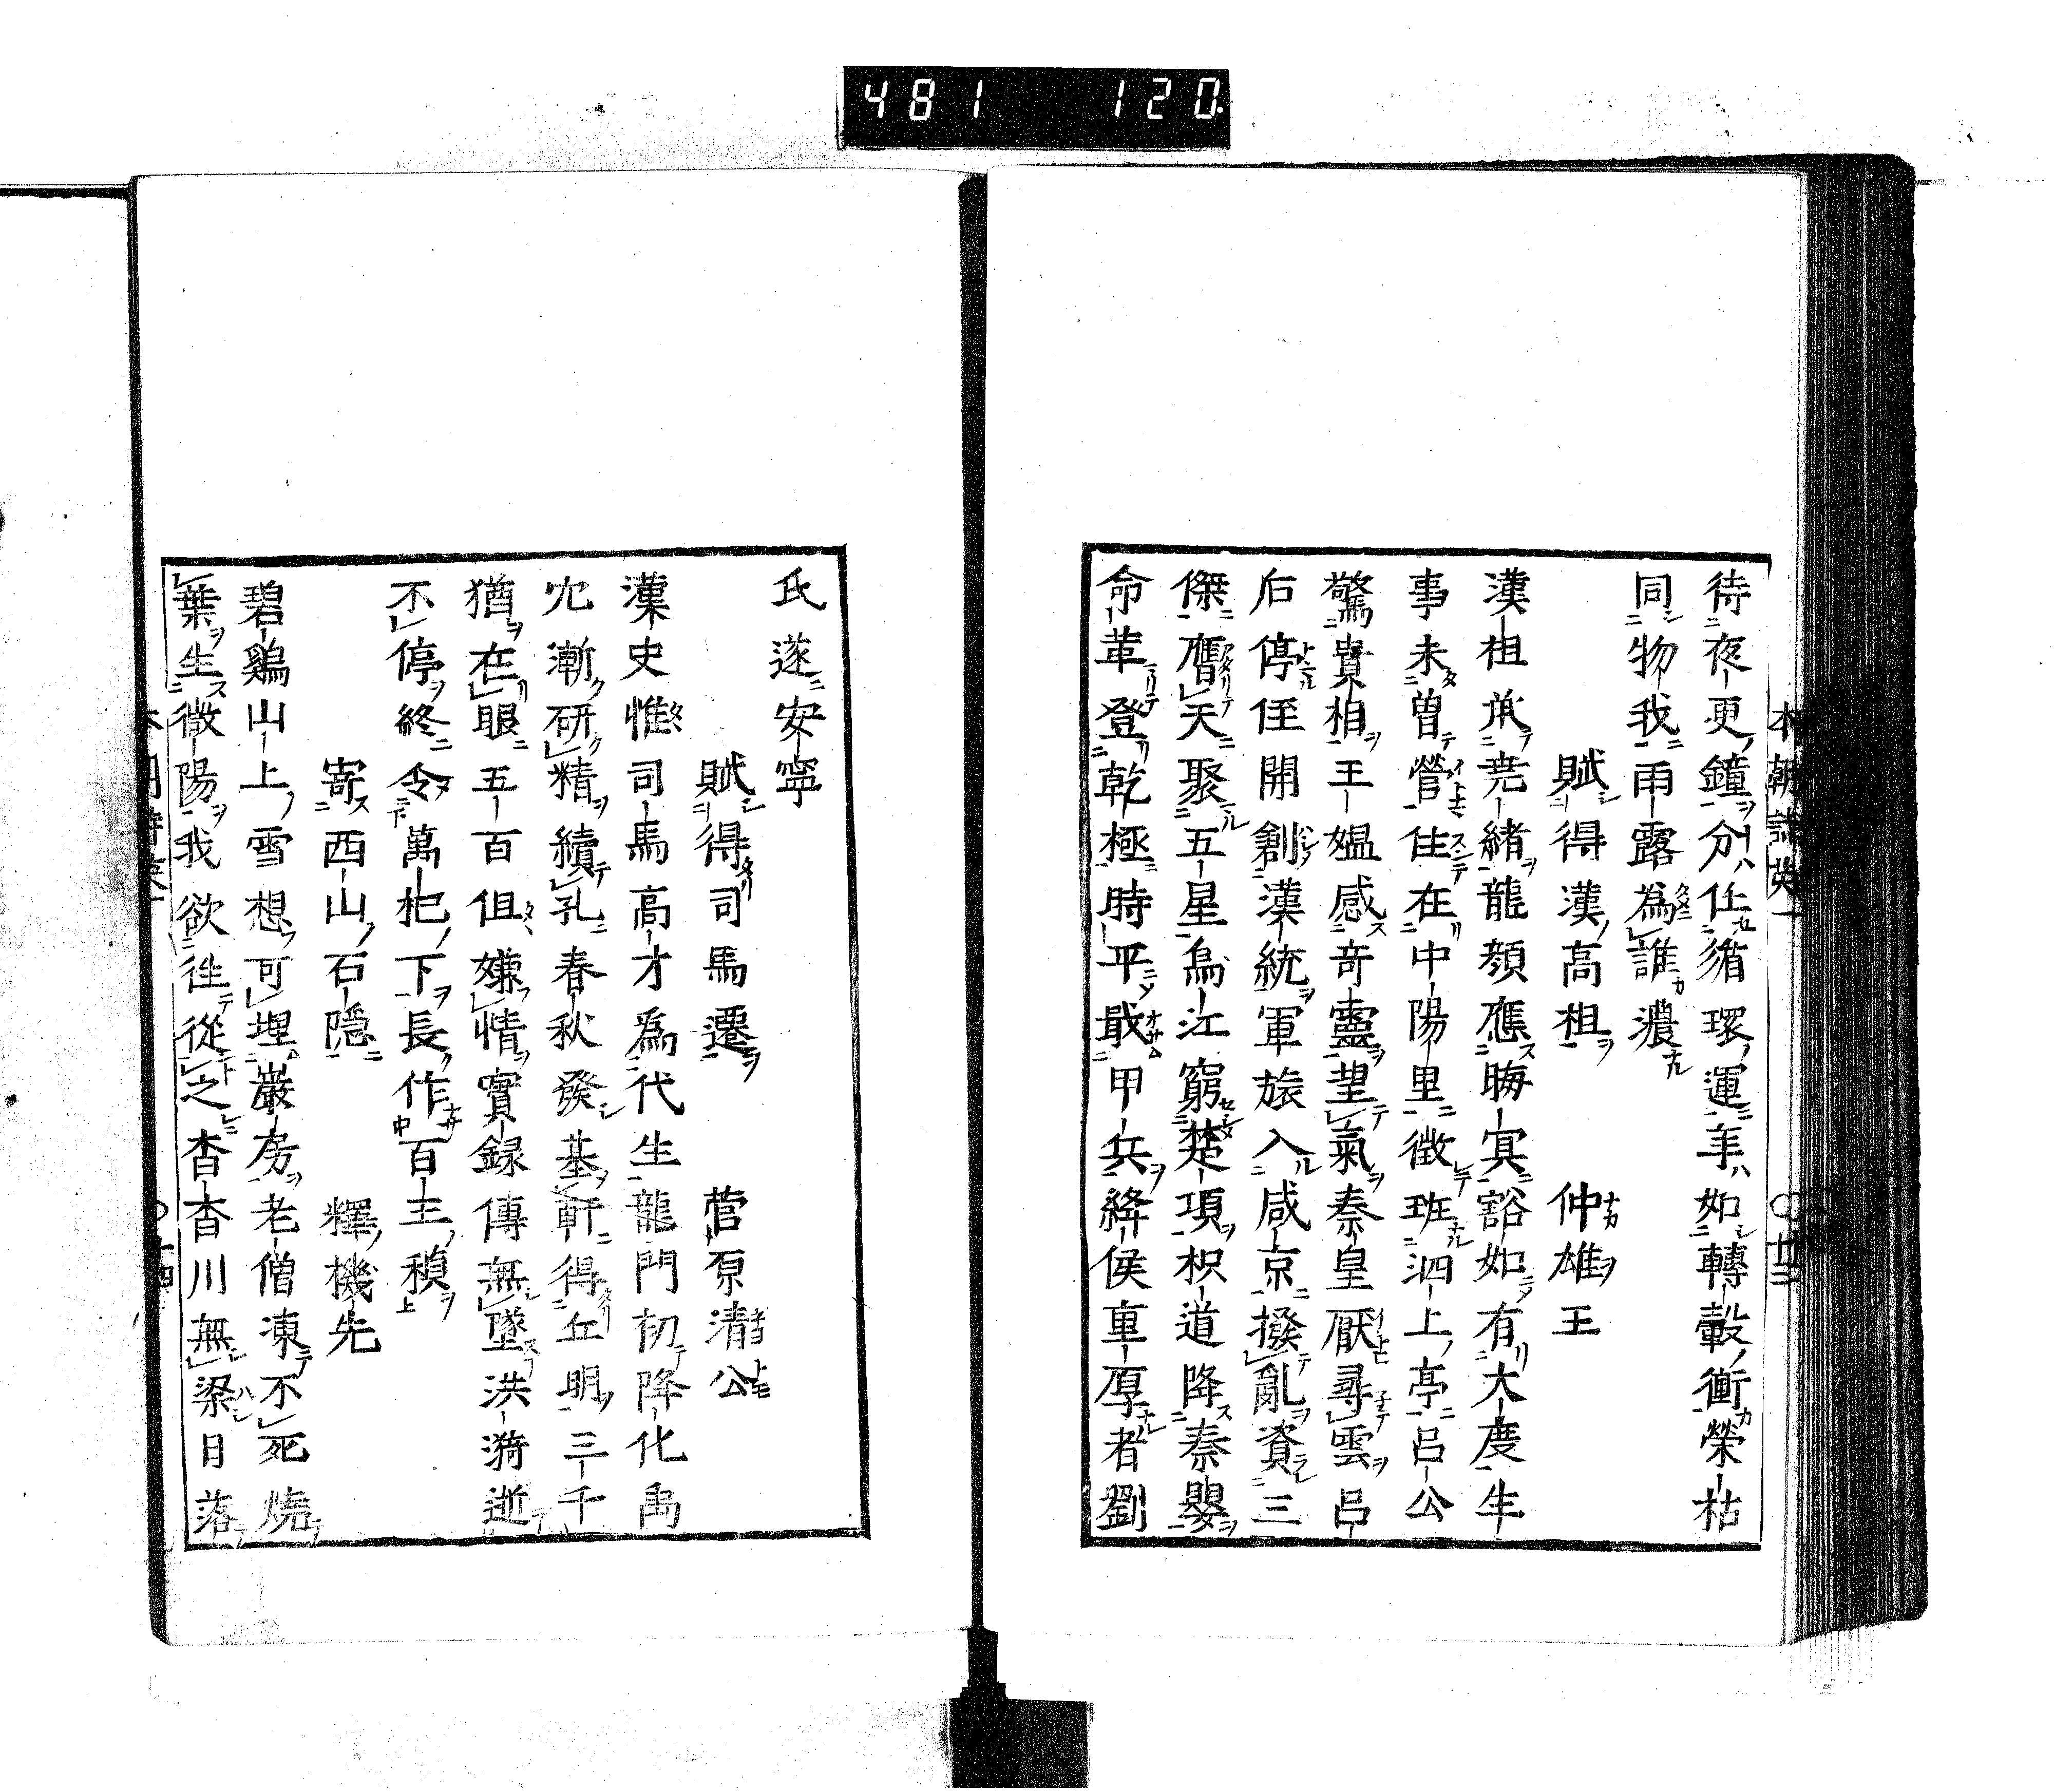 481 120
本朝詩英一 〇廿三
待夜更鐘分任循環運年如轉轂衝榮枯
同物我雨露為誰濃
賦得漢高祖 仲雄王
漢祖承堯緒龍顏應晦冥豁如有大度生
事未曽營住在中陽里徴班泗上亭呂公
驚貴相王媼感奇靈望氣秦皇厭尋雲呂
后停侄開創漢統軍旅入咸京撥亂資三
傑膺天聚五星烏江窮楚項枳道降秦嬰
命革登乾極時平戢甲兵絳侯重厚者劉
氏遂安寧
賦得司馬遷 菅原清公
漢史惟司馬高才爲代生龍門初降化禹
穴漸研精續孔春秋發基軒得丘明三千
猶在眼五百俎嫌情實録傳無墜洪漪逝
不停終令萬杞下長作百王禎
寄西山石隠 釋機先
碧鷄山上雪想可埋巖房老僧凍不死焼
葉生微陽我欲徃從之杳杳川無梁日落